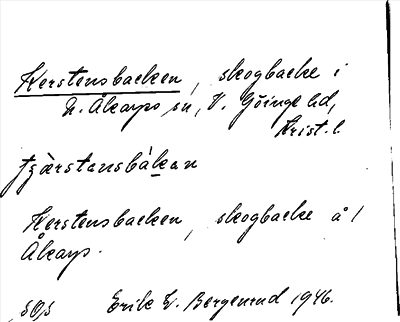 Kerstensbacken, skogbacke i
N. Åkarps sn, V. Göinge hd,
Krist. l.
tjærstansbàkan
Kerstensbacken, skogbacke å /
Åkarp.
Erik V. Bergenrud 1946.